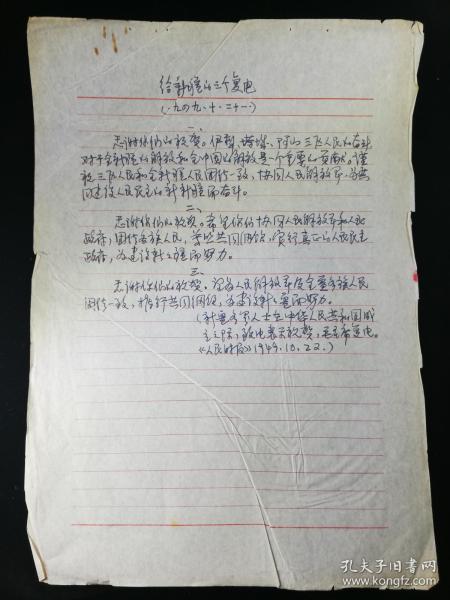 给新疆的三个复电
(一九四九、十、二十一)
一、
感谢你们的祝贺。伊犁、塔城、阿山三区人民的奋斗,
对于全新疆的解放和全中国的解放是一个重要的贡献。谨
祝三区人民和全新疆人民团结一致,协同人民解放军,为共
同建设人民民主的新新疆而奋斗。
二、
感谢你们的祝贺。希望你们协同人民解放军和人民
政府,团结各族人民,坚决共同纲领,实行真正的人民民主
政府,为建设新土疆而努力。
三、
感谢你们的祝贺。望与人民解放军及全疆各族人民
团结一致,推行共同纲领,为建设新土疆而努力。
(新疆各界人士在中华人民共和国成
立之际,致电表示祝贺,毛主席复电。
《人民日报》1949.10.22.)
孔夫子旧书网
www.kongfz.com